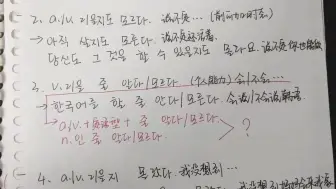 2. a.v. 리을지도 모르다. 说不定…
→ 아직 살지도 모른다. 说不定还活着.
당신도 그것을 할 수 있을지도 몰라요. 说不定你也能做
3. v.리을 줄 알다/모르다 (个人能力) 会/不会…
→ 한국어를 할 줄 안다/모른다. 会说/不会说韩语.
→ a.v. + 冠词型 + 줄 알다/모르다.
n.인 줄 알다/모르다. > ?
4. a.v.리을지 몰랐다. 我没想到…